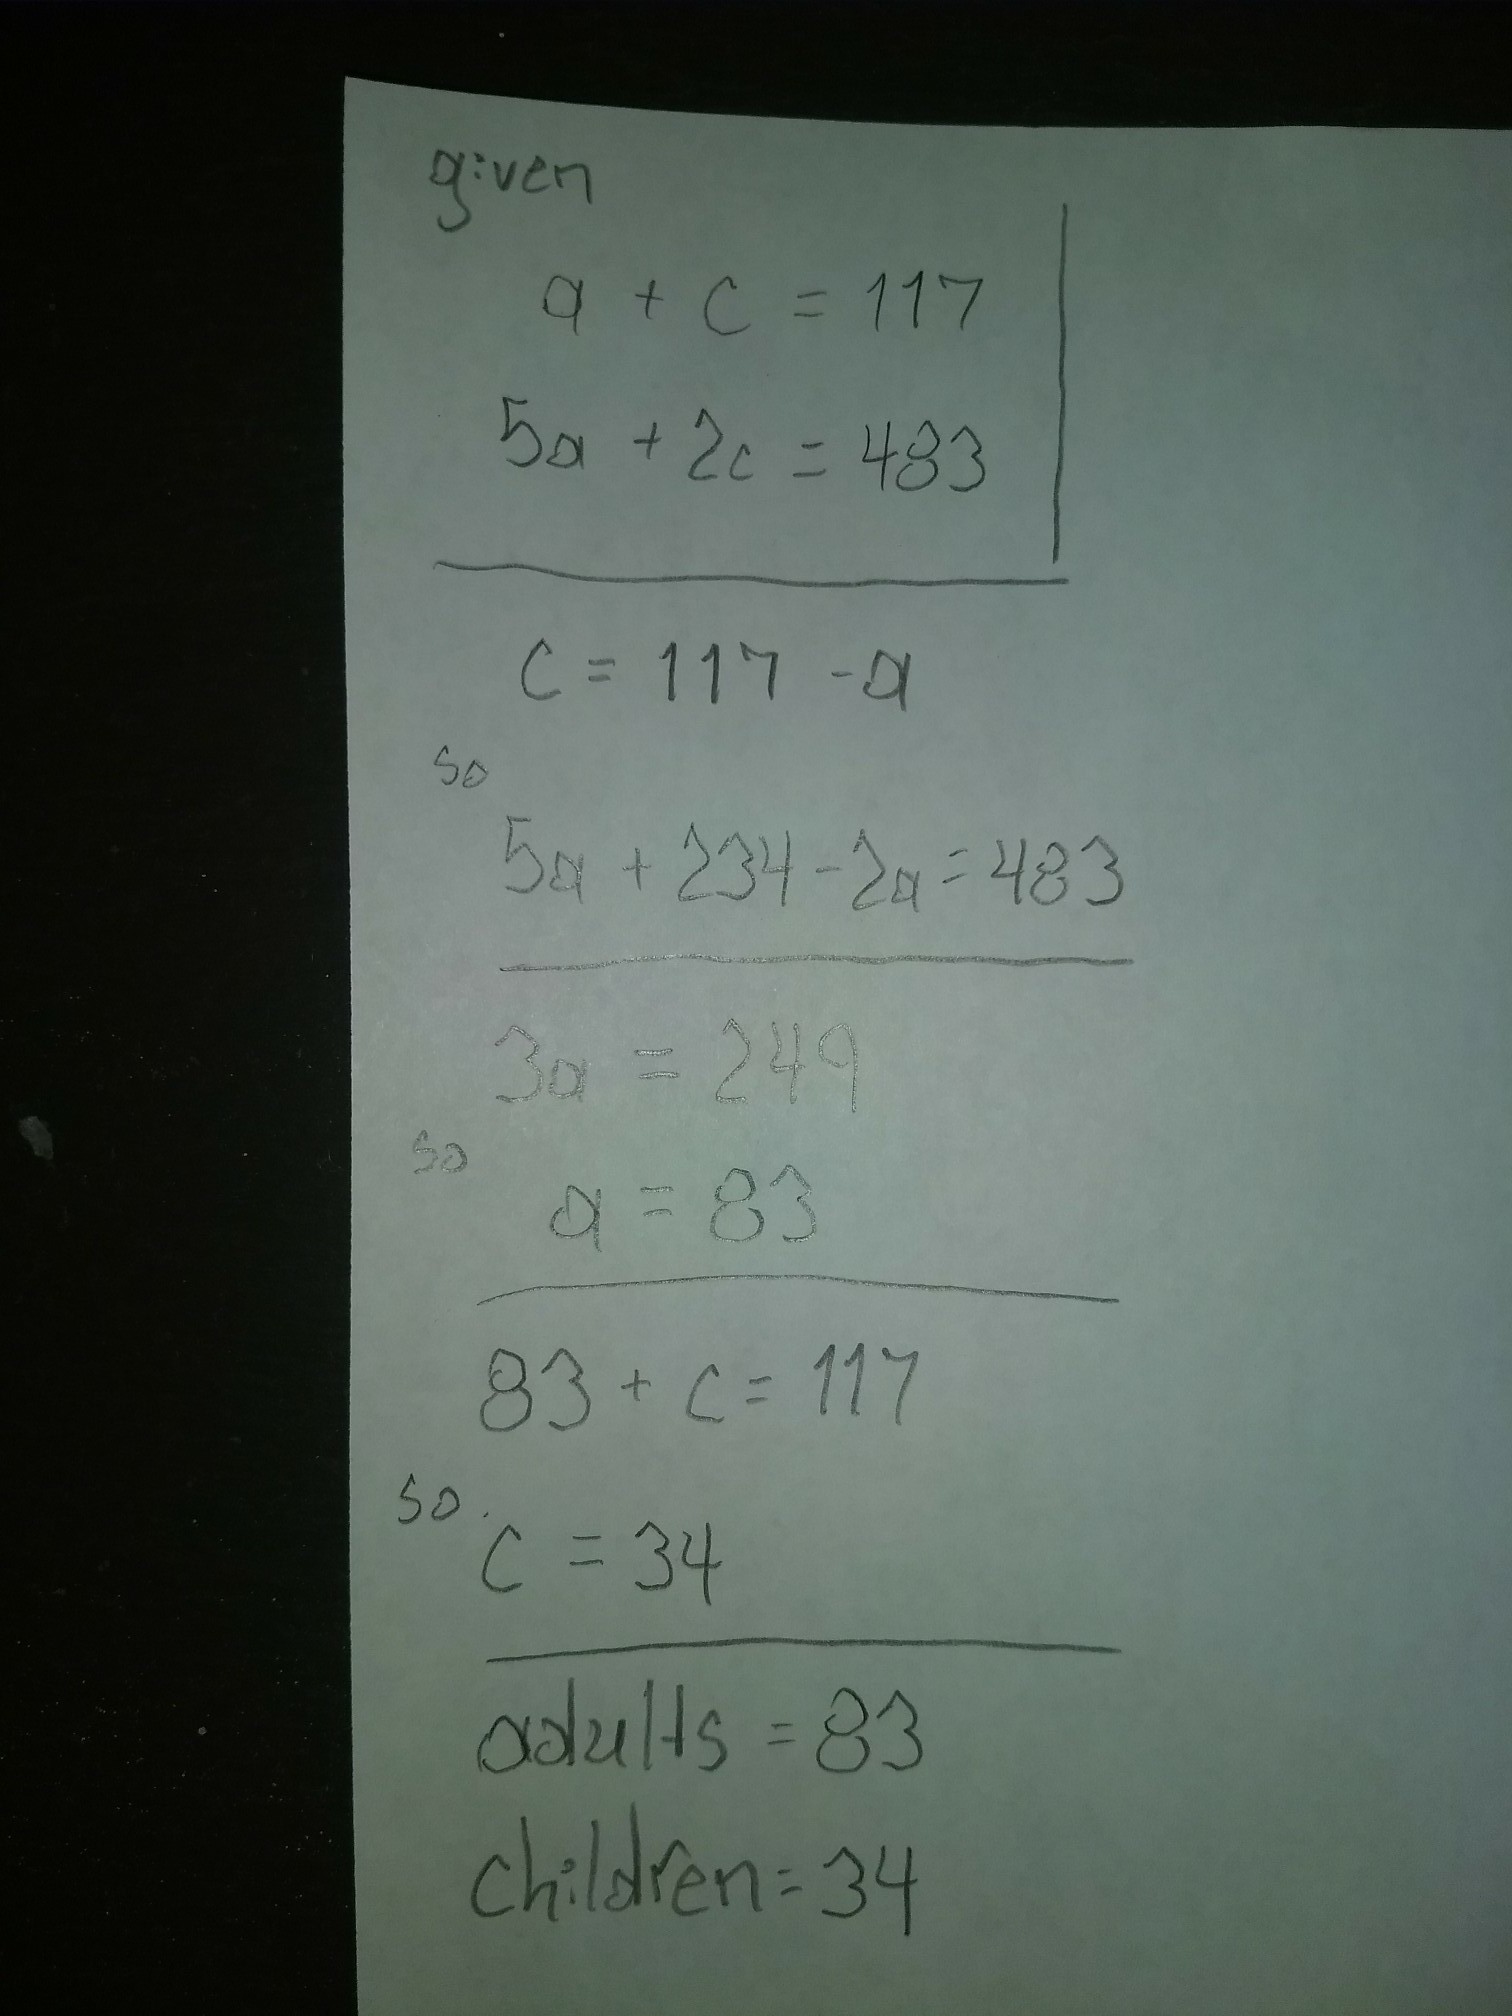 given
a + c = 117
5a + 2c = 483
c = 117 - a
so
5a + 234 - 2a = 483
3a = 249
so
a = 83
83 + c = 117
so
c = 34
adults = 83
children = 34